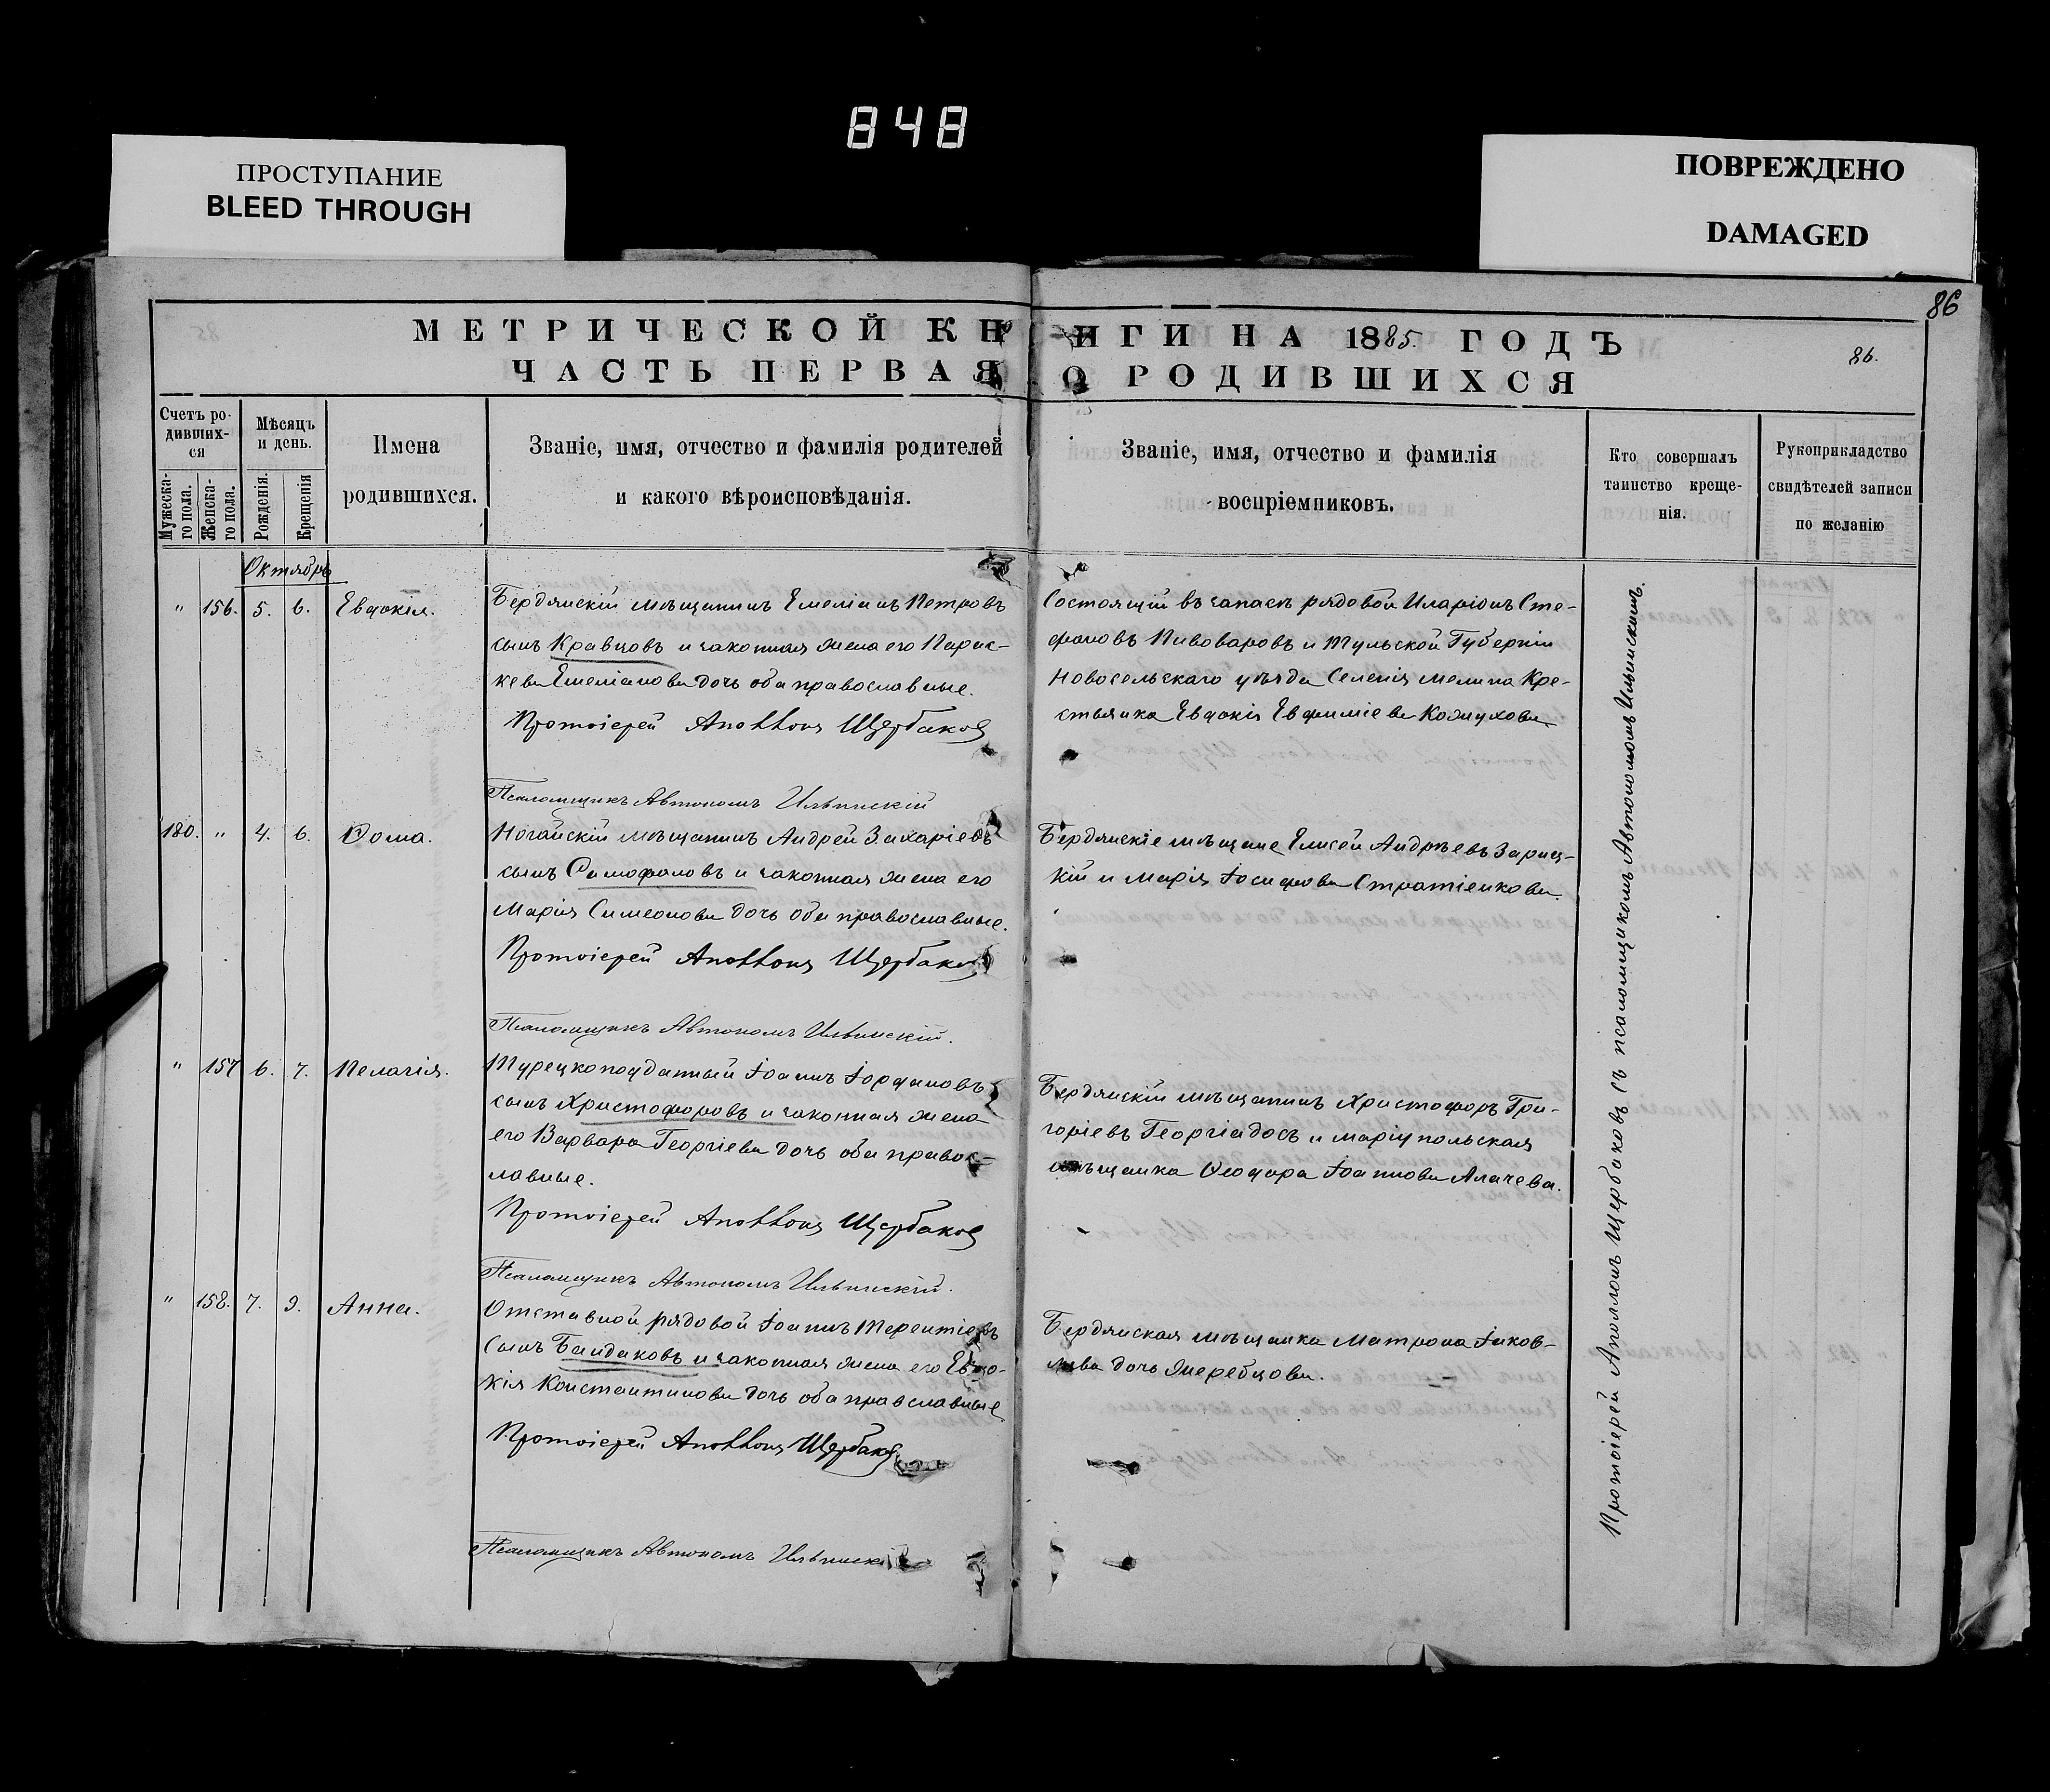 848
ПРОСТУПАНИЕ
BLEED THROUGH
ПОВРЕЖДЕНО
DAMAGED
86
МЕТРИЧЕСКОЙ КНИГИ НА 1885. ГОДЪ
86.
ЧАСТЬ ПЕРВАЯ О РОДИВШИХСЯ
Счетъ ро-
дивших-
ся
Мужеска-
го пола.
Женска-
го пола.
Мѣсяцъ
и день.
Рожденія.
Крещенія
Имена
родившихся.
Званіе, имя, отчество и фамилія родителей
и какого вѣроисповѣданія.
Званіе, имя, отчество и фамилія
воспріемниковъ.
Кто совершалъ
таинство креще-
нія.
Рукоприкладство
свидѣтелей записи
по желанію
Октябрь
" 156. 5. 6. Евдокія.
Бердянскій мѣщанинъ Емеліанъ Петровъ
сынъ Кравцовъ и законная жена его Парас-
кева Емеліанова дочь оба православные.
Протоіерей Аполлонъ Щербаковъ
Псаломщикъ Автономъ Ильинскій
Состоящій въ запасѣ рядовой Иларіонъ Сте-
фановъ Пивоваровъ и Тульской Губерніи
Новосельскаго уѣзда Селенія Мелина Кре-
стьянка Евдокія Евфиміева Кожухова.
180. " 4. 6. Ѳома.
Ногайскій мѣщанинъ Андрей Захаріевъ
сынъ Самофаловъ и законная жена его
Марія Симеонова дочь оба православные.
Протоіерей Аполлонъ Щербаковъ
Псаломщикъ Автономъ Ильинскій.
Бердянскіе мѣщане Елисей Андреевъ Зариц-
кій и Марія Іосифова Стратіенкова.
" 157 6. 7. Пелагія.
Турецкоподданный Іоаннъ Іордановъ
сынъ Христофоровъ и законная жена
его Варвара Георгіева дочь оба правос-
лавные.
Протоіерей Аполлонъ Щербаковъ
Псаломщикъ Автономъ Ильинскій.
Бердянскій мѣщанинъ Христофоръ Гри-
горіевъ Георгіадосъ и маріупольская
мѣщанка Ѳеодора Іоаннова Алачева.
" 158. 7. 9. Анна.
Отставной рядовой Іоаннъ Терентіевъ
сынъ Байдаковъ и законная жена его Евдо-
кія Константинова дочь оба православные
Протоіерей Аполлонъ Щербаковъ
Псаломщикъ Автономъ Ильинскій
Бердянская мѣщанка Матрона Іаков-
лева дочь Жеребцова.
Протоіерей Аполлонъ Щербаковъ съ псаломщикомъ Автономомъ Ильинскимъ.